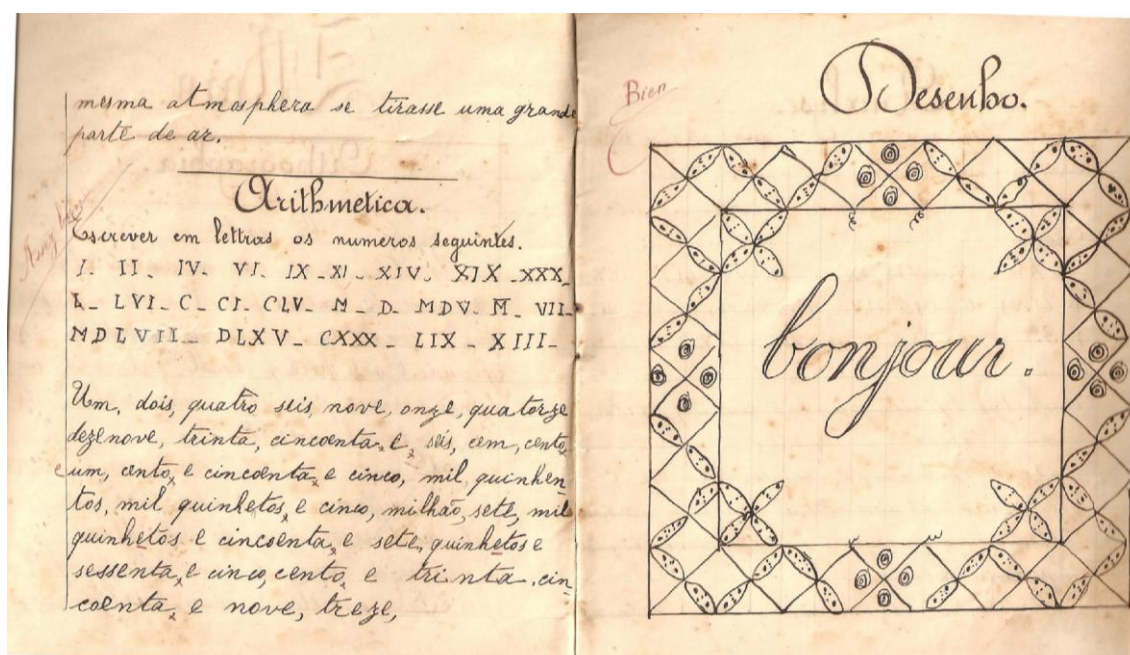 mesma atmosphera se tirasse uma grande
parte de ar.
Arithmetica.
Escrever em lettras os numeros seguintes.
I_ II_ IV_ VI_ IX_XI_ XIV_ XIX_XXX_
L_ LVI_C_CI_CLV_M_D_MDV_M̅_VII_
MDLVII_ DLXV_ CXXX_ LIX_XIII_
Um, dois, quatro seis, nove, onze, quatorze
dezenove, trinta, cincoenta e seis, cem, cento
e um, cento e cincoenta e cinco, mil quinhen
tos, mil quinhetos e cinco, milhão, sete, mil
quinhetos e cincoenta e sete, quinhetos e
sessenta e cinco, cento e trinta, cin
coenta e nove, treze,
Bien
Desenho.
bonjour.